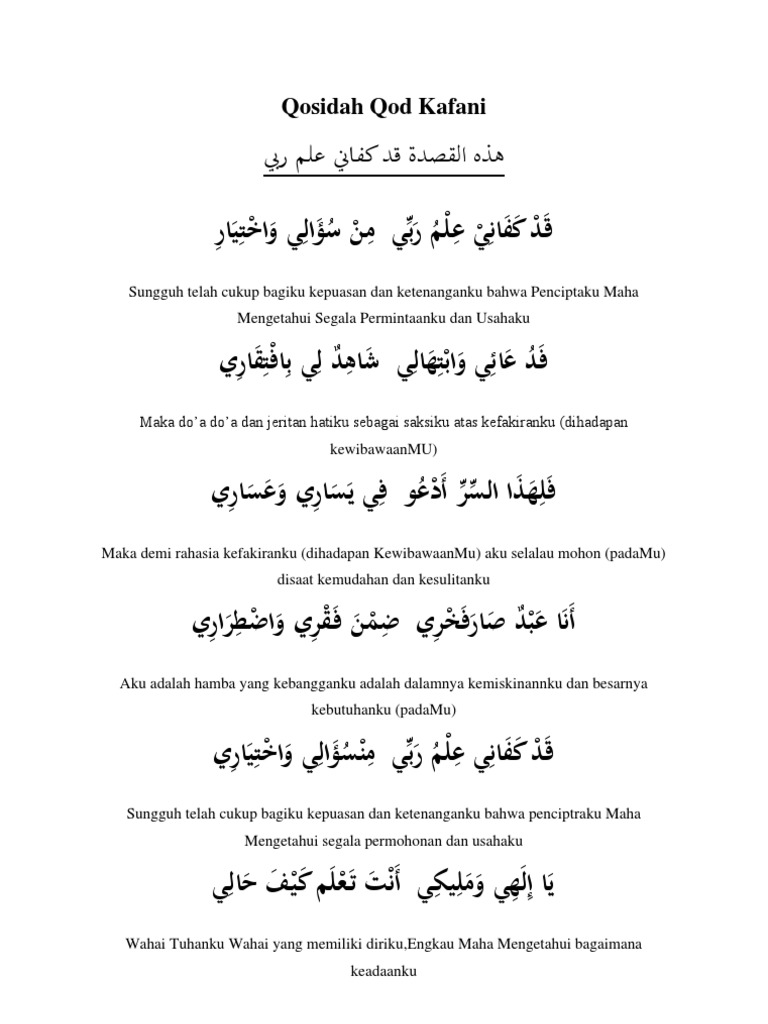 Qosidah Qod Kafani
هذه القصدة قد كفاني علم ربي
قَدْ كَفَانِيْ عِلْمُ رَبِّي مِنْ سُؤَالِي وَاخْتِيَارِ
Sungguh telah cukup bagiku kepuasan dan ketenanganku bahwa Penciptaku Maha
Mengetahui Segala Permintaanku dan Usahaku
فَدُ عَائِي وَابْتِهَالِي شَاهِدٌ لِي بِافْتِقَارِي
Maka do’a do’a dan jeritan hatiku sebagai saksiku atas kefakiranku (dihadapan
kewibawaanMU)
فَلِهَذَا السِّرِّ أَدْعُو فِي يَسَارِي وَعَسَارِي
Maka demi rahasia kefakiranku (dihadapan KewibawaanMu) aku selalau mohon (padaMu)
disaat kemudahan dan kesulitanku
أَنَا عَبْدٌ صَارَفَخْرِي ضِمْنَ فَقْرِي وَاضْطِرَارِي
Aku adalah hamba yang kebangganku adalah dalamnya kemiskinannku dan besarnya
kebutuhanku (padaMu)
قَدْ كَفَانِي عِلْمُ رَبِّي مِنْسُؤَالِي وَاخْتِيَارِي
Sungguh telah cukup bagiku kepuasan dan ketenanganku bahwa penciptraku Maha
Mengetahui segala permohonan dan usahaku
يَا إِلَهِي وَمَلِيكِي أَنْتَ تَعْلَم كَيْفَ حَالِي
Wahai Tuhanku Wahai yang memiliki diriku,Engkau Maha Mengetahui bagaimana
keadaanku